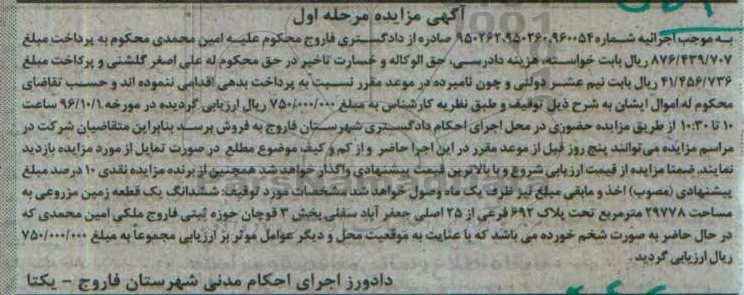 آگهی مزایده مرحله اول
به موجب اجرائیه شماره ۹۵۰۲۶۲،۹۵۰۲۶۰،۹۶۰۰۵۴ صادره از دادگستری فاروج محکوم علیه امین محمدی محکوم به پرداخت مبلغ
۸۷۶/۴۳۹/۷۰۷ ریال بابت خواسته، هزینه دادرسی، حق الوکاله و خسارت تاخیر در حق محکوم له علی اصغر گلشنی و پرداخت مبلغ
۴۱/۴۵۶/۷۳۶ ریال بابت نیم عشر دولتی و چون نامبرده در موعد مقرر نسبت به پرداخت بدهی اقدامی ننموده اند و حسب تقاضای
محکوم له اموال ایشان به شرح ذیل توقیف و طبق نظریه کارشناس به مبلغ ۷۵۰/۰۰۰/۰۰۰ ریال ارزیابی گردیده در مورخه ۹۶/۱۰/۱ ساعت
۱۰ تا ۱۰:۳۰ از طریق مزایده حضوری در محل اجرای احکام دادگستری شهرستان فاروج به فروش برسد بنابراین متقاضیان شرکت در
مراسم مزایده می توانند پنج روز قبل از موعد مقرر در این اجرا حاضر و از کم و کیف موضوع مطلع در صورت تمایل از مورد مزایده بازدید
نمایند. ضمنا مزایده از قیمت ارزیابی شروع و با بالاترین قیمت پیشنهادی واگذار خواهد شد همچنین از برنده مزایده نقدی ۱۰ درصد مبلغ
پیشنهادی (مصوب) اخذ و مابقی مبلغ نیز ظرف یک ماه وصول خواهد شد. مشخصات مورد توقیف: ششدانگ یک قطعه زمین مزروعی به
مساحت ۲۹۷۷۸ مترمربع تحت پلاک ۶۹۲ فرعی از ۲۵ اصلی جعفر آباد سفلی بخش ۳ قوچان حوزه ثبتی فاروج ملکی امین محمدی که
در حال حاضر به صورت شخم خورده می باشد که با عنایت به موقعیت محل و دیگر عوامل موثر بر ارزیابی مجموعاً به مبلغ ۷۵۰/۰۰۰/۰۰۰
ریال ارزیابی گردید.
دادورز اجرای احکام مدنی شهرستان فاروج - یکتا